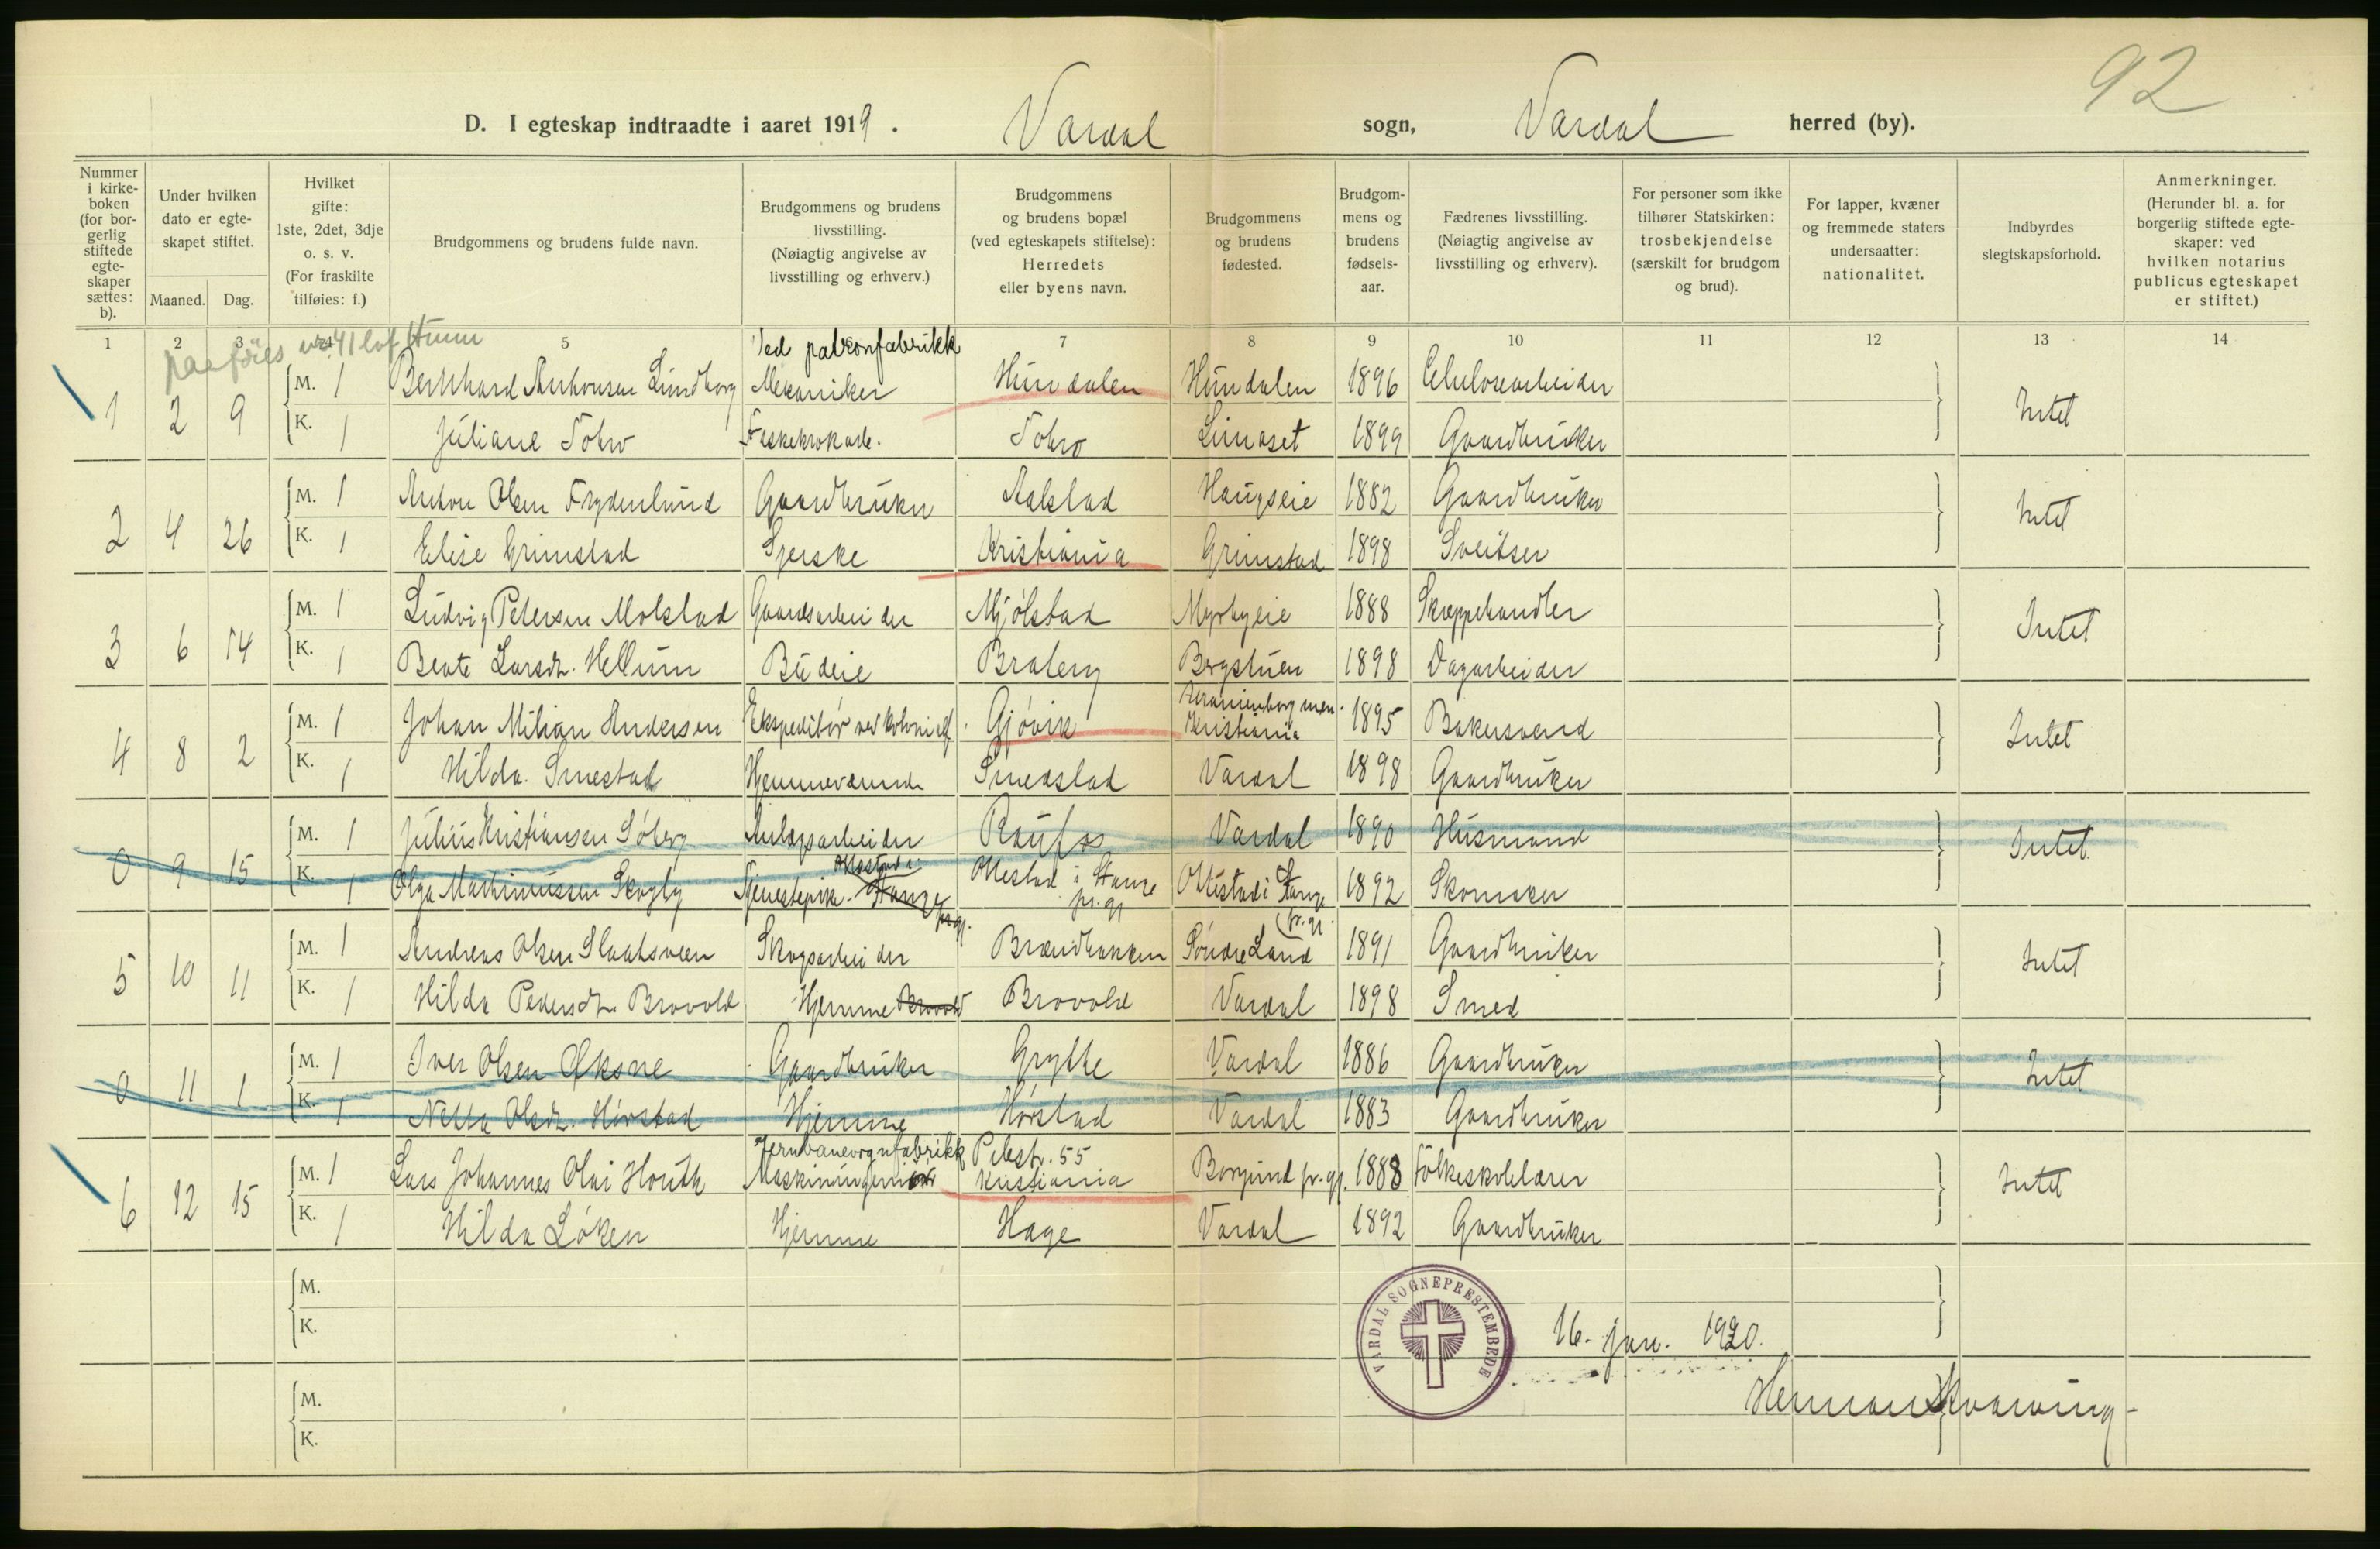 92
D. I egteskap indtraadte i aaret 1919. Vardal sogn, Vardal herred (by).
Nummer i kirkeboken (for borgerlig stiftede egteskaper sættes: b).
Under hvilken dato er egteskapet stiftet.
Maaned. Dag.
Hvilket gifte: 1ste, 2det, 3dje o. s. v. (For fraskilte tilføies: f.)
Brudgommens og brudens fulde navn.
Brudgommens og brudens livsstilling. (Nøiagtig angivelse av livsstilling og erhverv.)
Brudgommens og brudens bopæl (ved egteskapets stiftelse): Herredets eller byens navn.
Brudgommens og brudens fødested.
Brudgommens og brudens fødselsaar.
Fædrenes livsstilling. (Nøiagtig angivelse av livsstilling og erhverv).
For personer som ikke tilhører Statskirken: trosbekjendelse (særskilt for brudgom og brud).
For lapper, kvæner og fremmede staters undersaatter: nationalitet.
Indbyrdes slegtskapsforhold.
Anmerkninger. (Herunder bl. a. for borgerlig stiftede egteskaper: ved hvilken notarius publicus egteskapet er stiftet.)
1 2 3 4 5 7 8 9 10 11 12 13 14
paaføies nr 41
Ved patronfabrikk
1 2 9 M. 1 Bernhard Anhonsen Lundborg Mekaniker Hundalen Hundalen 1896 Celulosearbeider Intet
K. 1 Juliane Tobro Feskekrokarb. Tobro 1899 Gaardbruker
2 4 26 M. 1 Anton Olsen Frydenlund Gaardbruker Aalstad Haugseie 1882 Gaardbruker Intet
K. 1 Elise Grimstad Syerske Kristiania Grimstad 1898 Sveitser
3 6 14 M. 1 Ludvig Petersen Molstad Gaardsarbeider Mjölstad Myrbyeie 1888 Skreppehandler Intet
K. 1 Beate Larsdr. Hellum Budeie Braberg Bergstuen 1898 Dagarbeider
4 8 2 M. 1 Johan Milian Andersen Ekspeditör ved kolonialf. Gjövik Uranienborg men. Kristiania 1895 Bakersvend Intet
K. 1 Hilda Smestad Hjemmeværende Smedstad Vardal 1898 Gaardbruker
0 9 15 M. 1 Julius Kristiansen Söberg Anlegsarbeider Raufos Vardal 1890 Husmand Intet
K. 1 Olga Skogly Tjenestepike. Ottestad i Stange pr.gj. Ottestad i Stange pr.gj. Ottestad i Stange pr.gj. 1892 Skomaker
5 10 11 M. 1 Andreas Olsen Slaatsveen Skogsarbeider Brændbakken Söndre Land 1891 Gaardbruker Intet
K. 1 Hilda Pedersdr. Brovold Hjemme Brovold Brovold Vardal 1898 Smed
0 11 1 M. 1 Iver Olsen Öksne Gaardbruker Grytte Vardal 1886 Gaardbruker Intet
K. 1 Netta Olsdr. Hörstad Hjemme Hörstad Vardal 1883 Gaardbruker
Jernbanevognfabrikk Pilestr. 55
6 12 15 M. 1 Lars Johannes Olai Houth Maskiningeniör Kristiania Borgund pr.gj. 1888 Folkeskolelærer Intet
K. 1 Hilda Löken Hjemme Hage Vardal 1892 Gaardbruker
M.
K.
VARDAL SOGNEPRESTEMBEDE
16. jan. 1920.
M.
Herman Kvaring
K.